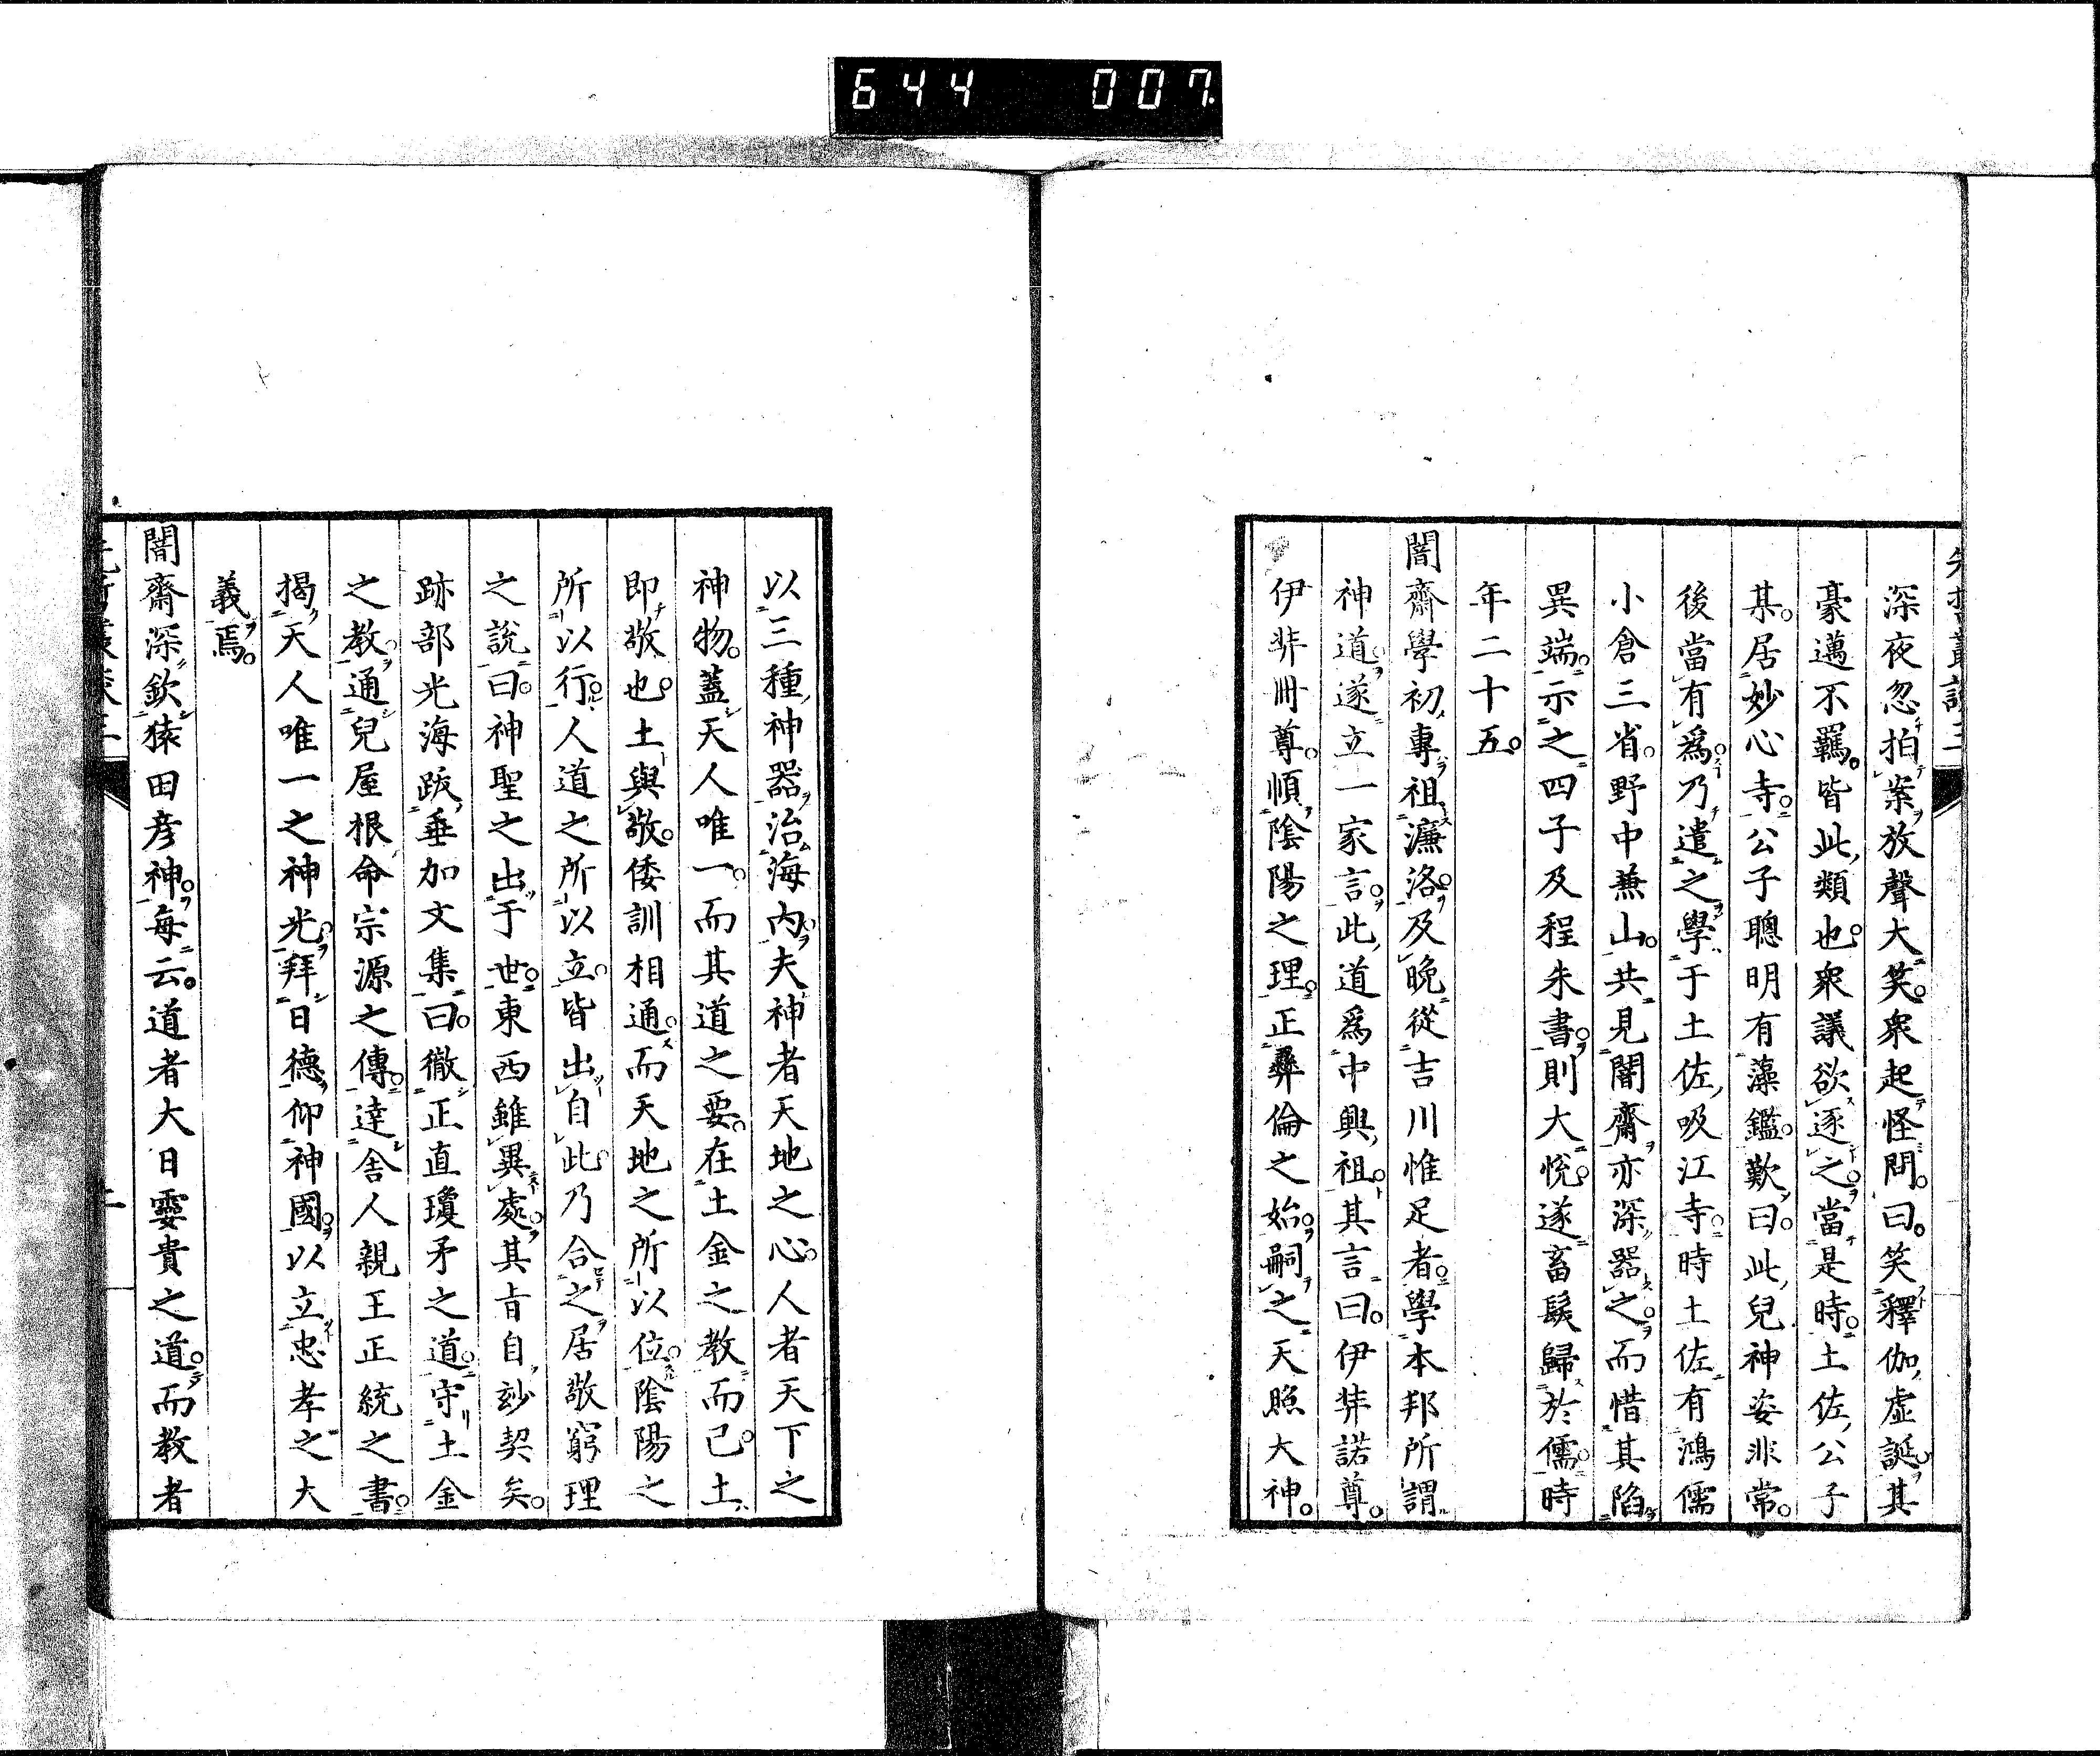 644 007
深夜忽拍案放聲大笑。衆起怪問。曰。笑釋伽虛誕。其
豪邁不羈。皆此類也。衆議欲逐之。當是時。土佐公子
某。居妙心寺。公子聰明有藻鑑。歎曰。此兒神姿非常。
後當有爲。乃遣之學于土佐吸江寺。時土佐有鴻儒
小倉三省。野中兼山。共見闇齋。亦深器之。而惜其陷
異端。示之四子及程朱書。則大悅。遂畜髮歸於儒。時
年二十五。
闇齋學初專祖濂洛。及晚從吉川惟足者。學本邦所謂
神道。遂立一家言。此道爲中興祖。其言曰。伊弉諾尊。
伊弉冊尊。順陰陽之理。正彝倫之始。嗣之天照大神。
以三種神器。治海內。夫神者天地之心。人者天下之
神物。蓋天人唯一。而其道之要。在土金之教而已。土
即敬也。土與敬。倭訓相通。而天地之所以位。陰陽之
所以行。人道之所以立。皆出自此。乃合之居敬窮理
之說曰。神聖之出于世。東西雖異處。其旨自玅契矣。
跡部光海跋垂加文集曰。徹正直瓊矛之道。守土金
之教。通兒屋根命宗源之傳。達舍人親王正統之書。
揭天人唯一之神光。拜日德。仰神國。以立忠孝之大
義焉。
闇齋深欽猿田彥神。每云。道者大日孁貴之道。而教者